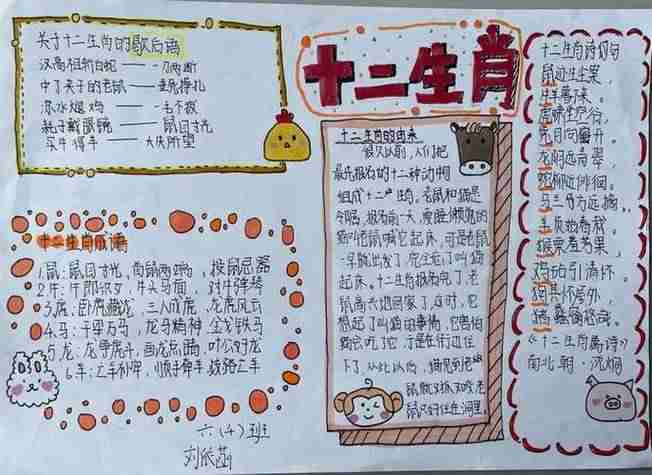 关于十二生肖的歇后语
汉高祖斩白蛇——一刀两断
中了夹子的老鼠——垂死挣扎
滚水烟鸡——一毛不拔
耗子戴眼镜——鼠目寸光
买牛得羊——大失所望
十二生肖
十二生肖的由来
很久以前,人们把
最先报名的十二种动物
组成十二生肖。老鼠和猫是
今隔,报名前一天,爱睡懒觉的
猫叫老鼠喊它起床,可是老鼠
一早就出发了,完全忘了叫猫
起床。十二生肖报名完了,老
鼠高兴地回家了,这时,它
想起了叫猫的事情,它害怕
猫会吃了它,于是在街边住
下了,从此以后,猫见到老鼠
就
老
鼠只好住在洞里
十二生肖诗句
鼠迹生尘案,
牛羊暮下来。
虎啸坐空谷,
兔月向窗开。
龙隰远青翠,
蛇柳近徘徊。
马兰方远摘,
羊负始春栽。
猴栗羞芳果,
鸡砧引清杯。
狗其怀屋外,
猪蠡窅悠哉。
《十二生肖属诗》
南北朝·沈炯
十二生肖成语
1.鼠:鼠目寸光,首鼠两端,投鼠忌器
2.牛:牛郎织女,牛头马面,对牛弹琴
3.虎:卧虎藏龙,三人成虎,龙虎风云
4.马:千军万马,龙马精神,金戈铁马
5.龙:龙争虎斗,画龙点睛,叶公好龙
6.羊:亡羊补牢,顺手牵羊,歧路亡羊
六(4)班
刘